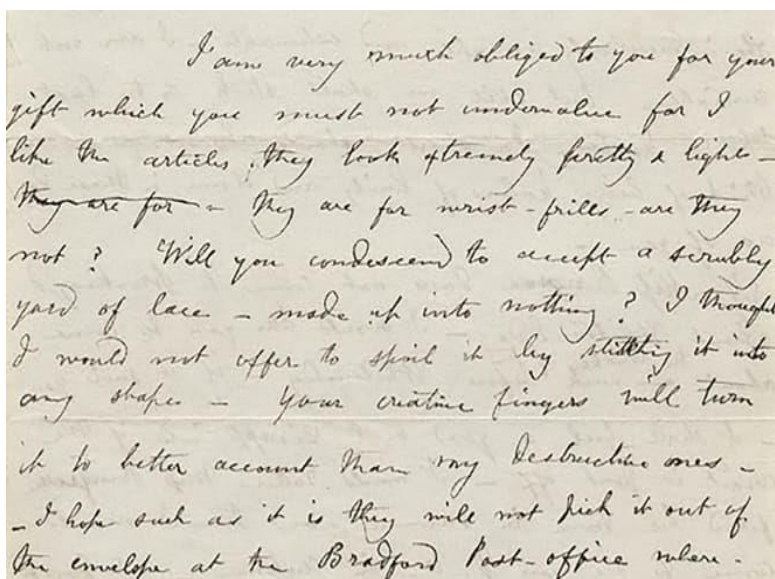 I am very much obliged to you for your
gift which you must not undervalue for I
like the articles, they look extremely pretty & light -
they are for - they are for wrist-frills - are they
not? Will you condescend to accept a scrubby
yard of lace - made up into nothing? I thought
I would not offer to spoil it by stitching it into
any shape - Your creative fingers will turn
it to better account than my destructive ones -
- I hope such as it is they will not pick it out of
the envelope at the Bradford Post-office where -